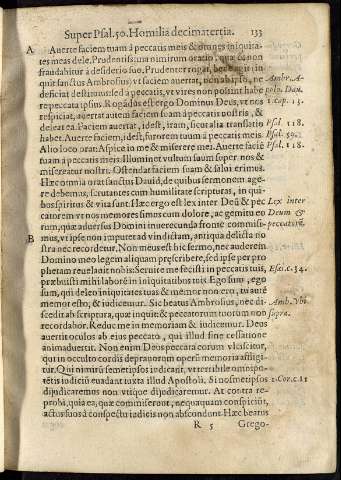 Super Psal. 50. Homilia decimatertia. 133
A Auerte faciem tuam à peccatis meis & omnes iniquita
tes meas dele. Prudentissima nimirum oratio, quæ & non
fraudabitur à desiderio suo. Prudenter rogat, bene agit (in
quit sanctus Ambrosius) vt faciem auertat, non ab ipso, ne Ambr. A-
deficiat destitutus: sed à peccatis, vt vires non possint habe polo. Dau.
re peccata ipsius. Rogādus est ergo Dominus Deus, vt nos 1. cap. 15.
respiciat, auertat autem faciem suam à peccatis nostris, &
deleat ea. Faciem auertat, idest, iram, sicut alia translatio Psal. 118.
habet. Auerte faciem, idest, furorem tuum à peccatis meis. Psal. 50.
Alio loco orat: Aspice in me & miserere mei. Auerte faciē Psal. 118.
tuam à peccatis meis. Illuminet vultum suum super nos &
misereatur nostri. Ostendat faciem suam & salui erimus.
Hæc omnia orat sanctus Dauid, de quibus sermonem age-
re debemus, scrutantes cum humilitate scripturas, in qui-
bus spiritus & vita sunt. Hæc ergo est lex inter Deū & pec Lex inter
catorem vt nos memores simus cum dolore, ac gemitu eo Deum &
rum, quæ aduersus Domini inuerecunda fronte commisi- peccatorē.
B mus, vt ipse non imputet ad vindictam, antiqua delicta no
stra nec recordetur. Non meus est hic sermo, nec auderem
Domino meo legem aliquam pręscribere, sed ipse per pro
phetam reuelauit nobis: Seruire me fecisti in peccatis tuis, Esai. c. 34.
præbuisti mihi laborē in iniquitatibus tuis. Ego sum, ego
sum, qui deleo iniquitates tuas & memor non ero, tu autē
memor esto, & iudicemur. Sic beatus Ambrosius, nec di- Amb. Vbi
scedit ab scriptura, quæ inquit & peccatorum tuorum non supra.
recordabor. Reduc me in memoriam & iudicemur. Deus
auertit oculos ab eius peccato, qui illud sine cessatione
animaduertit. Non enim Deus peccata eorum vlciscitur,
qui in occulto cordis deprauorum operū memoria affligi
tur. Qui nimirū semetipsos iudicant, vt terribile omnipo-
tētis iudiciū euadant iuxta illud Apostoli. Si nosmetipsos 1. Cor. c. 11
dijudicaremus non vtique dijudicaremur. At contra re-
probi, quia ea, quæ commiserunt, nequaquam conspiciūt,
actus suos à conspectu iudicis non abscondunt. Hæc beatus
R 5 Grego-